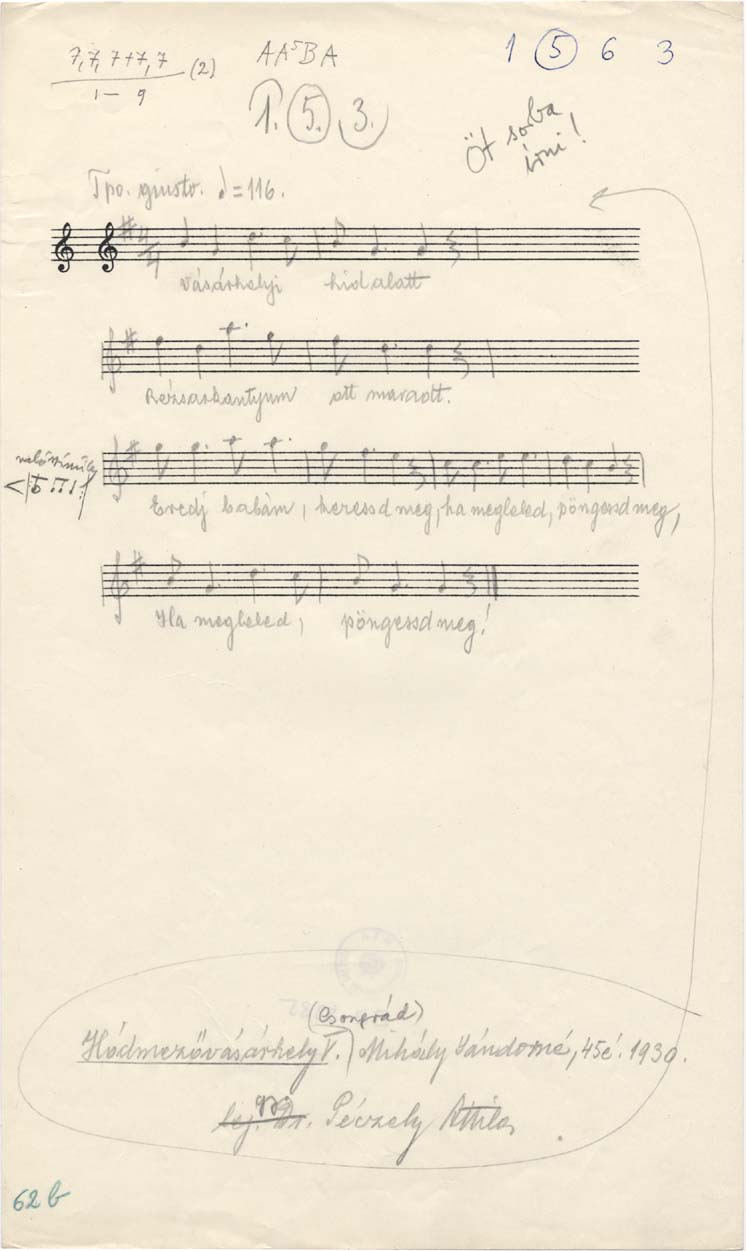 7, 7, 7+7, 7 (2)
1 – 9
AA⁵BA
1. 5. 3.
1 5 6 3
Öt sorba
írni!
Tpo. giusto. ♩=116.
Vásárhelyi hid alatt
Rézsarkantyum ott maradt.
Eredj babám, keressd meg, ha megleled, pöngessd meg,
Ha megleled, pöngessd meg!
(Csongrád)
Hódmezővásárhely V. Mihály Sándorné, 45é. 1930.
Péczely Attila
62 b